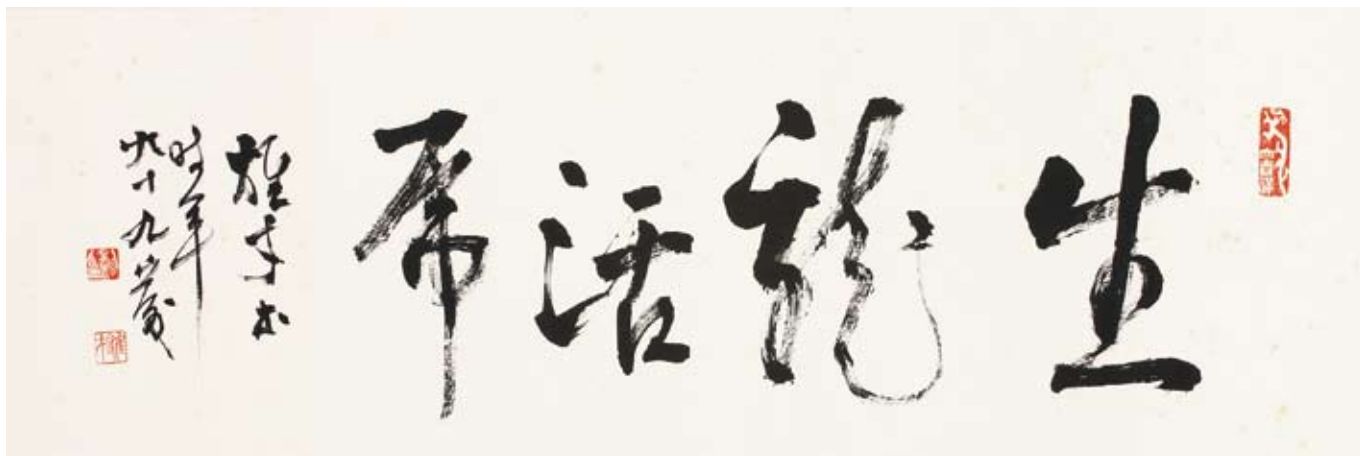 生龍活虎
雄才書
時年
十九歲